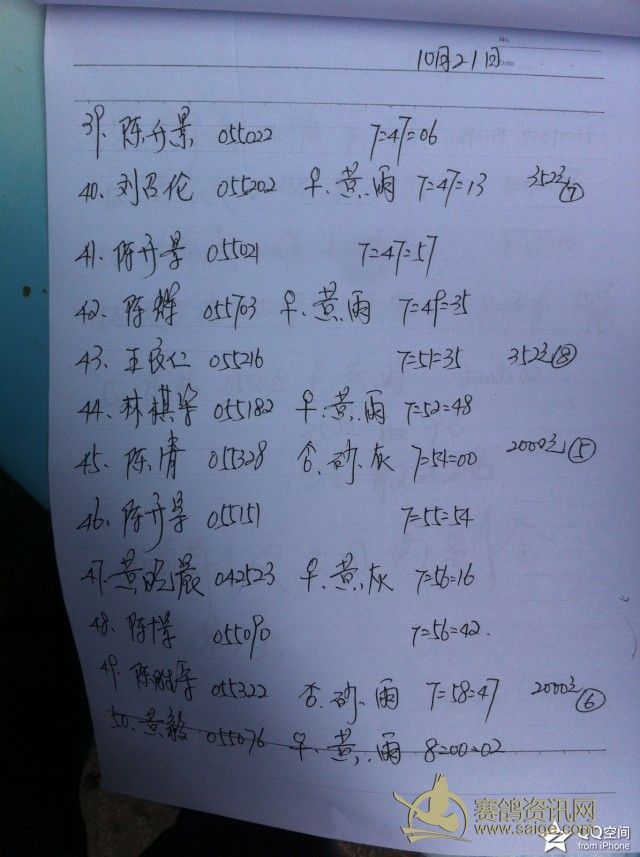 No.
10月21日 Date
39、陈升景 055022 7=47=06
40、刘召伦 055202 ♀、黄、雨 7=47=13 352元⑦
41、陈升景 055021 7=47=57
42、陈辉 055703 ♀、黄、雨 7=49=35
43、王良仁 055216 7=51=35 352元⑧
44、林棋 055182 ♀、黄、雨 7=52=48
45、陈清 055328 否、砂、灰 7=54=00 2000元⑤
46、陈升景 055151 7=55=54
47、黄晓晨 042523 ♀、黄、灰 7=56=16
48、陈 055090 7=56=42
49、陈胜 055322 否、砂、雨 7=58=47 2000元⑥
50、黄毅 055076 ♀、黄、雨 8=00=02
赛鸽资讯网
www.saige.com
QQ空间
from iPhone